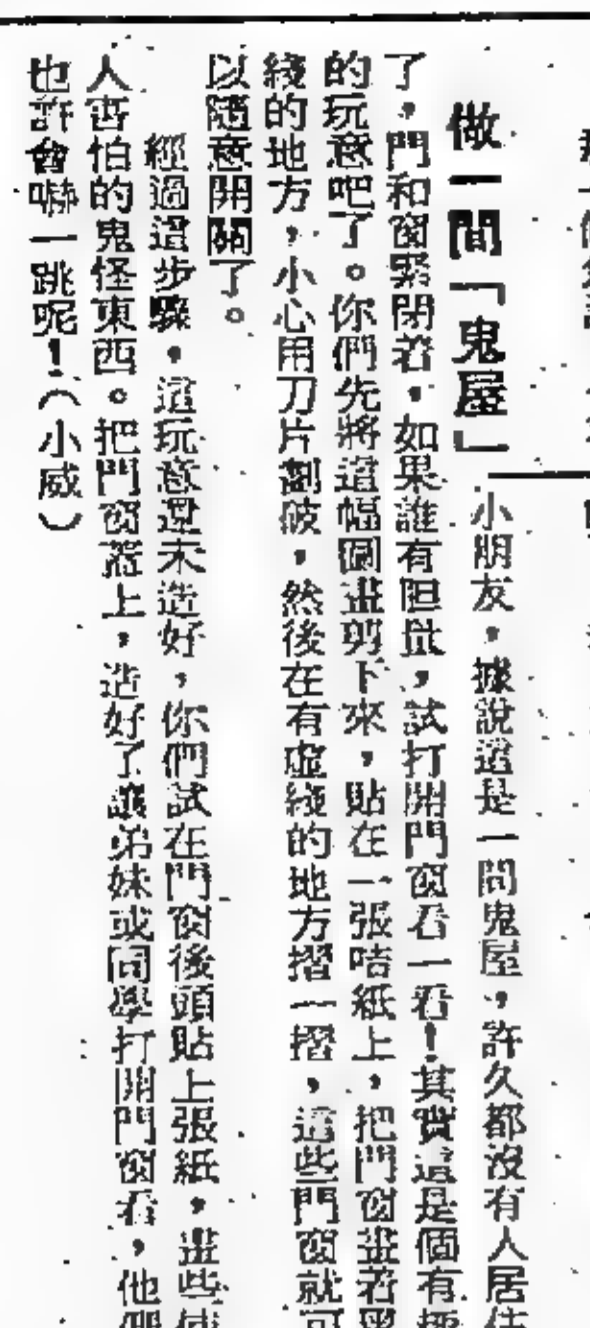 做一間「鬼屋」
小朋友，據說這是一問鬼屋，許久都沒有人居住
了，門和窗緊閉着，如果誰有胆量，試打開門窗看一看！其實這是個有極
的玩意吧了。你們先將這幅圖畫剪下來，貼在一張咭紙上，把門窗畫着黑
綫的地方，小心用刀片劃破，然後在有虛綫的地方摺一摺，這些門窗就可
以隨意開關了。
經過這步驟，這玩意還未造好，你們試在門窗後頭貼上張紙，畫些使
人害怕的鬼怪東西。把門窗蓋上，造好了讓弟妹或同學打開門窗看，他們
也許會嚇一跳呢！（小威）